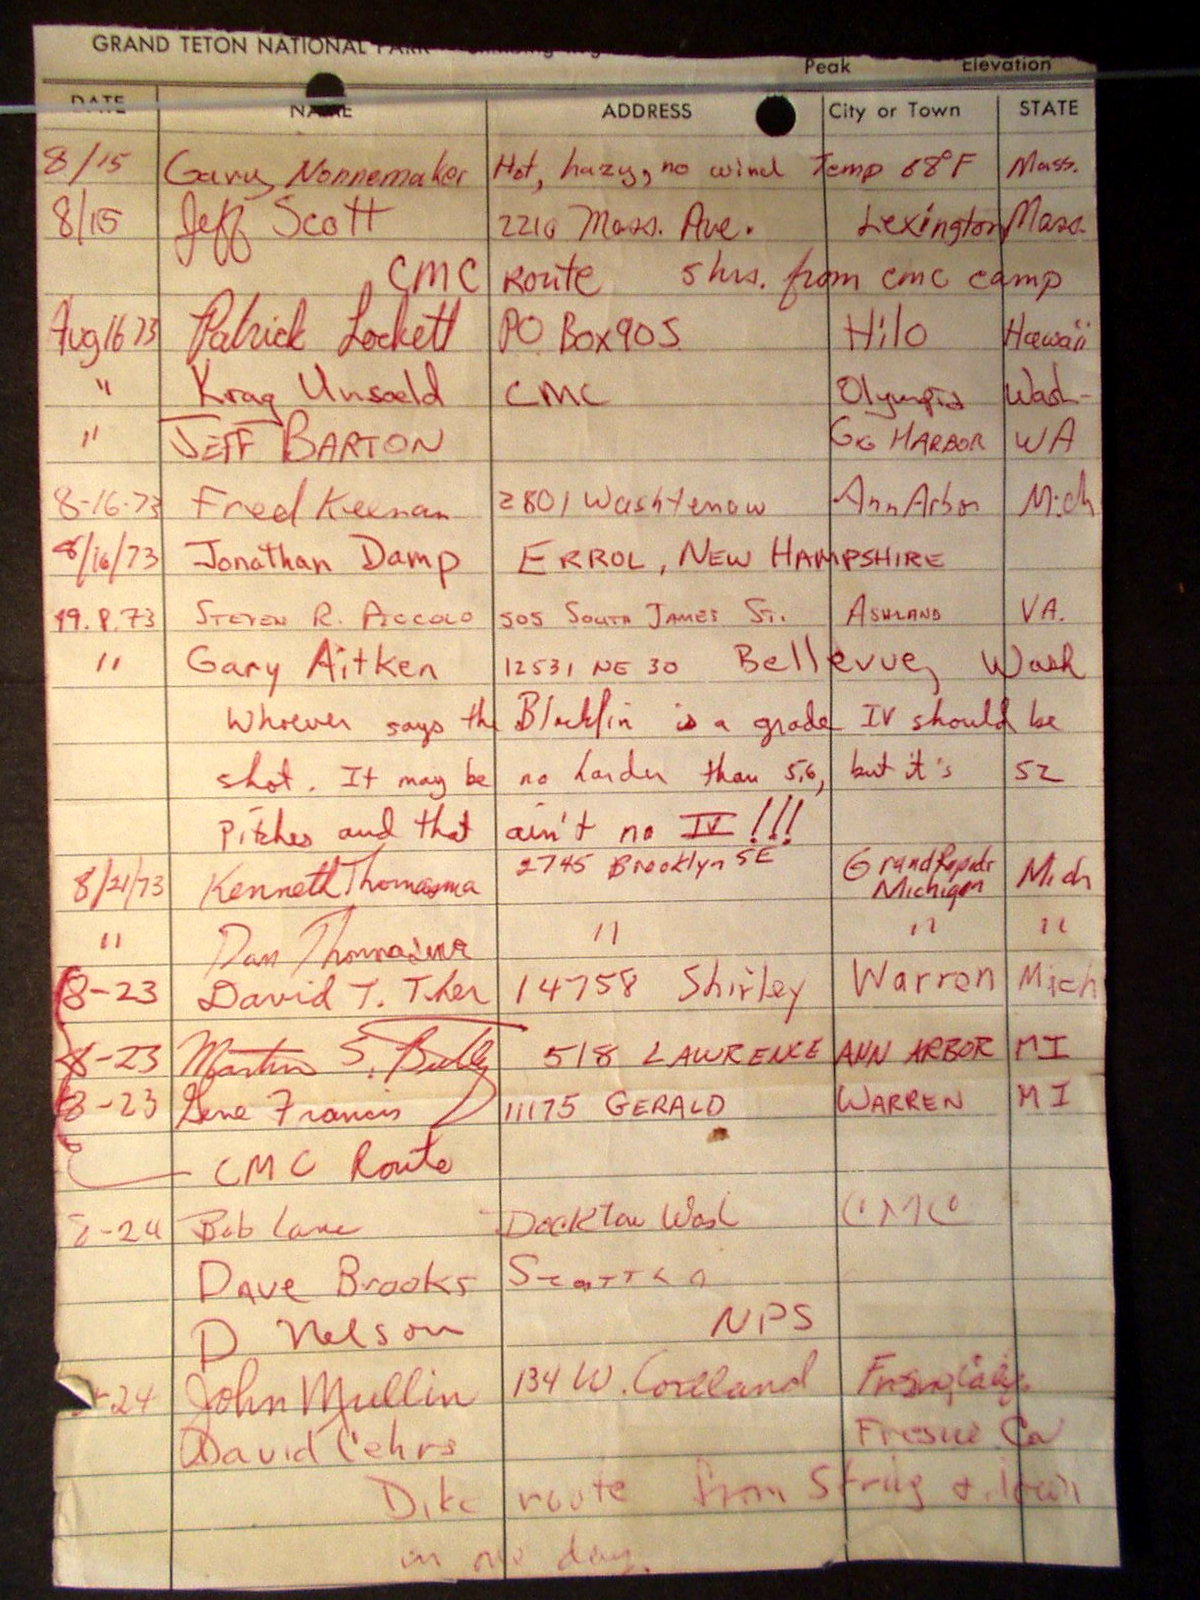 GRAND TETON NATIONAL PARK
Peak Elevation
DATE NAME ADDRESS City or Town STATE
8/15 Gary Nonnemaker Hot, hazy, no wind Temp 68°F Mass.
8/15 Jeff Scott 2210 Mass. Ave. Lexington Mass.
CMC Route 5 hrs. from CMC camp
Aug 16 73 Patrick Lockett PO Box 905 Hilo Hawaii
" Krag Unsoeld CMC Olympia Wash-
" JEFF BARTON GIG HARBOR WA
8-16-73 Fred Keenan 2801 Washtenow Ann Arbor Mich
8/16/73 Jonathan Damp ERROL, NEW HAMPSHIRE
19.8.73 STEVEN R. PICCOLO 505 SOUTH JAMES ST. ASHLAND VA.
" Gary Aitken 12531 NE 30 Bellevue, Wash
Whoever says the Blackfin is a grade IV should be
shot. It may be no harder than 5.6, but it's 52
Pitches and that ain't no IV!!!
8/21/73 Kenneth Thomasma 2745 Brooklyn SE Grand Rapids Michigan Mich
" Dan Thomasma " " "
8-23 David T. 14758 Shirley Warren Mich
8-23 Martin S. 518 LAWRENCE ANN ARBOR MI
8-23 Gene Francis 11175 GERALD WARREN MI
CMC Route
8-24 Bob Lane Dockton Wash CMC
Dave Brooks
D Nelson NPS
-24 John Mullin 134 W.
David Cehrs Fresno Ca
Dike route from String & down
in one day.